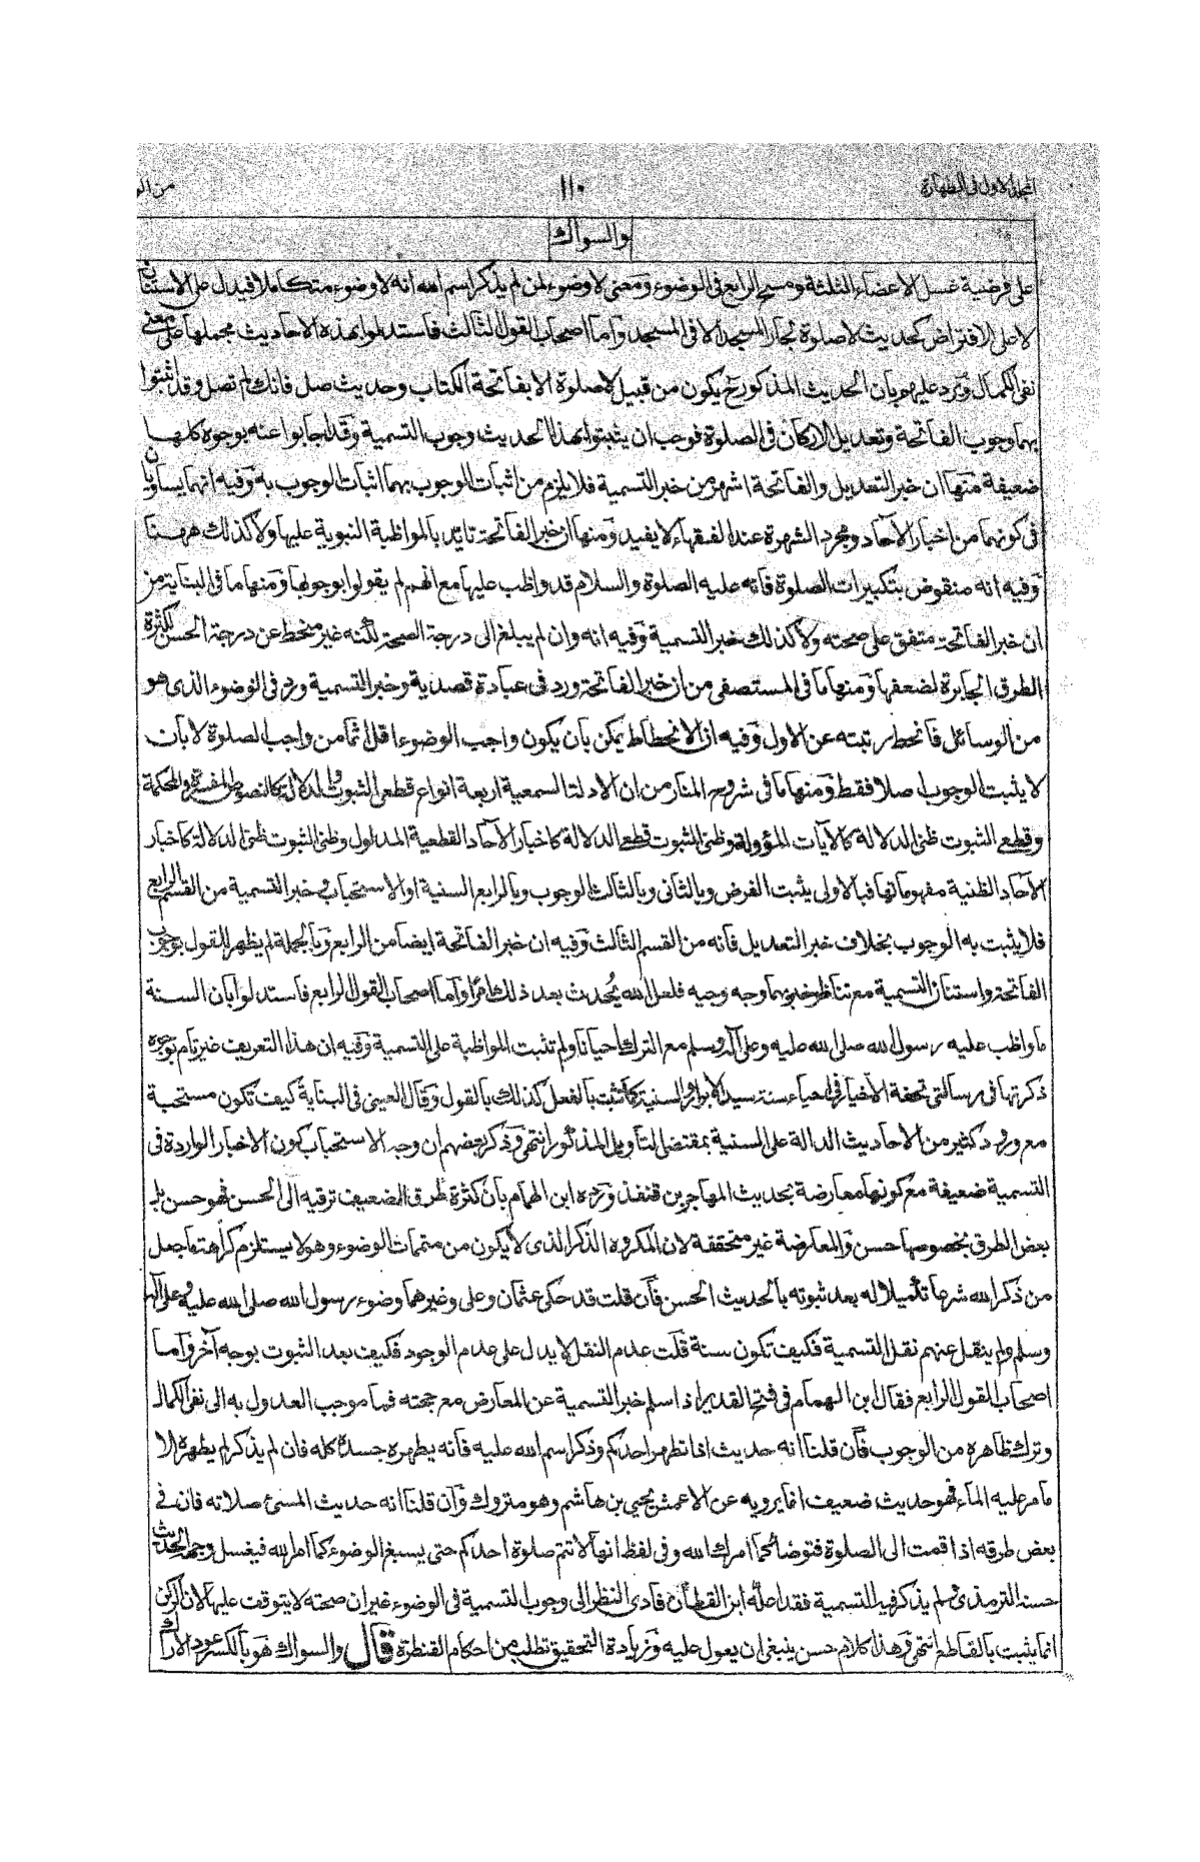 المجلد الاول فى الطهارة
١١٠
من الو
والسواك
على فرضية غسل الاعضاء الثلثة ومسح الرابع فى الوضوء ومعنى لا وضوء لمن لم يذكر اسم الله انه لا وضوء متكاملا فيدل على الاستنان
لا على الافتراض كحديث لا صلوة لجار المسجد الا فى المسجد واما اصحاب القول الثالث فاستدلوا بهذه الاحاديث مجملها على معنى
نفى الكمال ويرد عليهم بان الحديث المذكور ح يكون من قبيل لا صلوة الا بفاتحة الكتاب وحديث صل فانك لم تصل وقد اثبتوا
بهما وجوب الفاتحة وتعديل الاركان فى الصلوة فوجب ان يثبتوا بهذا الحديث وجوب التسمية وقد اجابوا عنه بوجوه كلها
ضعيفة منها ان خبر التعديل والفاتحة اشهر من خبر التسمية فلا يلزم من اثبات الوجوب بهما اثبات الوجوب به وفيه انهما يساويان
فى كونهما من اخبار الآحاد ومجرد الشهرة عند الفقهاء لا يفيد ومنها ان خبر الفاتحة تائد بالمواظبة النبوية عليها ولا كذلك ههنا
وفيه انه منقوض بتكبيرات الصلوة فانه عليه الصلوة والسلام قد واظب عليها مع انهم لم يقولوا بوجوبها ومنها ما فى البناية من
ان خبر الفاتحة متفق على صحته ولا كذلك خبر التسمية وفيه انه وان لم يبلغ الى درجة الصحة لكنه غير منحط عن درجة الحسن لكثرة
الطرق الجابرة لضعفها ومنها ما فى المستصفى من ان خبر الفاتحة ورد فى عبادة قصدية وخبر التسمية ورد فى الوضوء الذى هو
من الوسائل فانحط رتبته عن الاول وفيه ان الانحطاط يمكن بان يكون واجب الوضوء اقل اثما من واجب الصلوة لا بان
لا يثبت الوجوب اصلا فقط ومنها ما فى شروح المنار من ان الادلة السمعية اربعة انواع قطعى الثبوت والدلالة كالنصوص المفسرة والمحكمة
وقطعى الثبوت ظنى الدلالة كالآيات المؤولة وظنى الثبوت قطعى الدلالة كاخبار الآحاد القطعية المدلول وظنى الثبوت ظنى الدلالة كاخبار
الآحاد الظنية مفهوماتها فبالاولى يثبت الفرض وبالثانى وبالثالث الوجوب وبالرابع السنية او الاستحباب وخبر التسمية من القسم الرابع
فلا يثبت به الوجوب بخلاف خبر التعديل فانه من القسم الثالث وفيه ان خبر الفاتحة ايضا من الرابع وبالجملة لم يظهر للقول بوجوب
الفاتحة واستنان التسمية مع تناظر خبريهما وجه وجيه فلعل الله يحدث بعد ذلك امرا واما اصحاب القول الرابع فاستدلوا بان السنة
ما واظب عليه رسول الله صلى الله عليه وعلى آله وسلم مع الترك احيانا ولم تثبت المواظبة على التسمية وفيه ان هذا التعريف غير تام بوجوه
ذكرتها فى رسالتى تحفة الأخيار فى احياء سنة سيد الابرار والسنية كما تثبت بالفعل كذلك بالقول وقال العينى فى البناية كيف تكون مستحبة
مع ورود كثير من الاحاديث الدالة على السنية بمقتضى التاويل المذكور انتهى وذكر بعضهم ان وجه الاستحباب كون الاخبار الواردة فى
التسمية ضعيفة مع كونها معارضة بحديث المهاجر بن قنفذ ورده ابن الهمام بان كثرة طرق الضعيف ترقيه الى الحسن فهو حسن بل
بعض الطرق بخصوصها حسن والمعارضة غير متحققة لان المكروه الذكر الذى لا يكون من متممات الوضوء وهو لا يستلزم كراهة ما جعل
من ذكر الله شرعا تكميلا له بعد ثبوته بالحديث الحسن فان قلت قد حكى عثمان وعلى وغيرهما وضوء رسول الله صلى الله عليه وعلى آله
وسلم ولم ينقل عنهم نقل التسمية فكيف تكون سنة قلت عدم النقل لا يدل على عدم الوجود فكيف بعد الثبوت بوجه آخر واما
اصحاب القول الرابع فقال ابن الهمام فى فتح القدير اذا سلم خبر التسمية عن المعارض مع حجته فما موجب العدول به الى نفى الكمال
وترك ظاهره من الوجوب فان قلنا انه حديث اذا تطهر احدكم وذكر اسم الله عليه فانه يطهره جسده كله فان لم يذكر لم يطهره الا
ما مر عليه الماء فهو حديث ضعيف انما يرويه عن الاعمش يحيى بن هاشم وهو متروك وان قلنا انه حديث المسئ صلاته فان فى
بعض طرقه اذا قمت الى الصلوة فتوضا كما امرك الله وفى لفظ انها لا تتم صلوة احدكم حتى يسبغ الوضوء كما امر الله فيغسل وجهه الحديث
حسنه الترمذى ولم يذكر فيه التسمية فقد اعله ابن القطان فادى النظر الى وجوب التسمية فى الوضوء غير ان صحته لا يتوقف عليها لان الركن
انما يثبت بالقاطع انتهى وهذا كلام حسن ينبغى ان يعول عليه وزيادة التحقيق تطلب من احكام القنطرة قال والسواك هو بالكسر عود الاراك